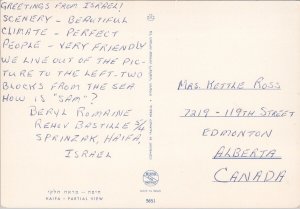 GREETINGS FROM ISRAEL!
SCENERY - BEAUTIFUL
CLIMATE - PERFECT
PEOPLE - VERY FRIENDLY
WE LIVE OUT OF THE PIC-
TURE TO THE LEFT-TWO
BLOCKS FROM THE SEA
HOW IS "SAM"?
BERYL ROMAINE
REHOV BASTILLE 5/4
SPRINZAK, HAIFA,
ISRAEL
MRS. KETTLE ROSS
7219 - 119TH STREET
EDMONTON
ALBERTA
CANADA
חיפה - מראה חלקי
HAIFA - PARTIAL VIEW
5651